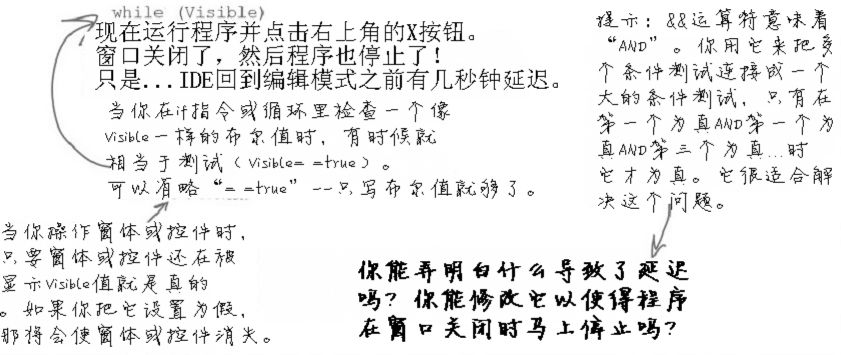 while (Visible)
现在运行程序并点击右上角的X按钮。
窗口关闭了，然后程序也停止了！
只是...IDE回到编辑模式之前有几秒钟延迟。
当你在if指令或循环里检查一个像
Visible一样的布尔值时，有时候就
相当于测试（Visible= =true）。
可以省略“= =true”--只写布尔值就够了。
当你操作窗体或控件时，
只要窗体或控件还在被
显示Visible值就是真的
。如果你把它设置为假，
那将会使窗体或控件消失。
提示：&&运算符意味着
“AND”。你用它来把多
个条件测试连接成一个
大的条件测试，只有在
第一个为真AND第一个为
真AND第三个为真...时
它才为真。它很适合解
决这个问题。
你能弄明白什么导致了延迟
吗？你能修改它以使得程序
在窗口关闭时马上停止吗？